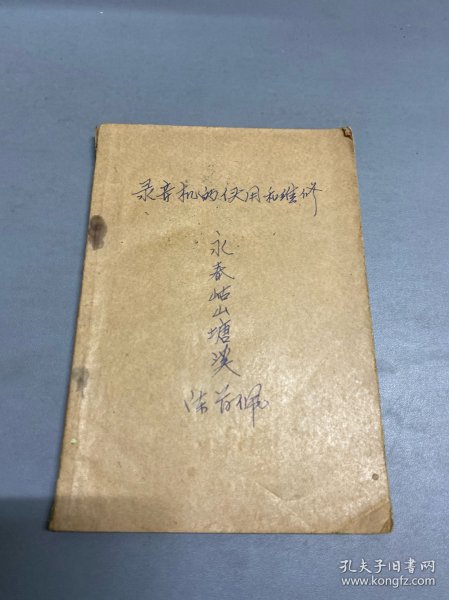 录音机的使用和维修
永春岵山塘溪
陈
孔夫子旧书网
www.kongfz.com